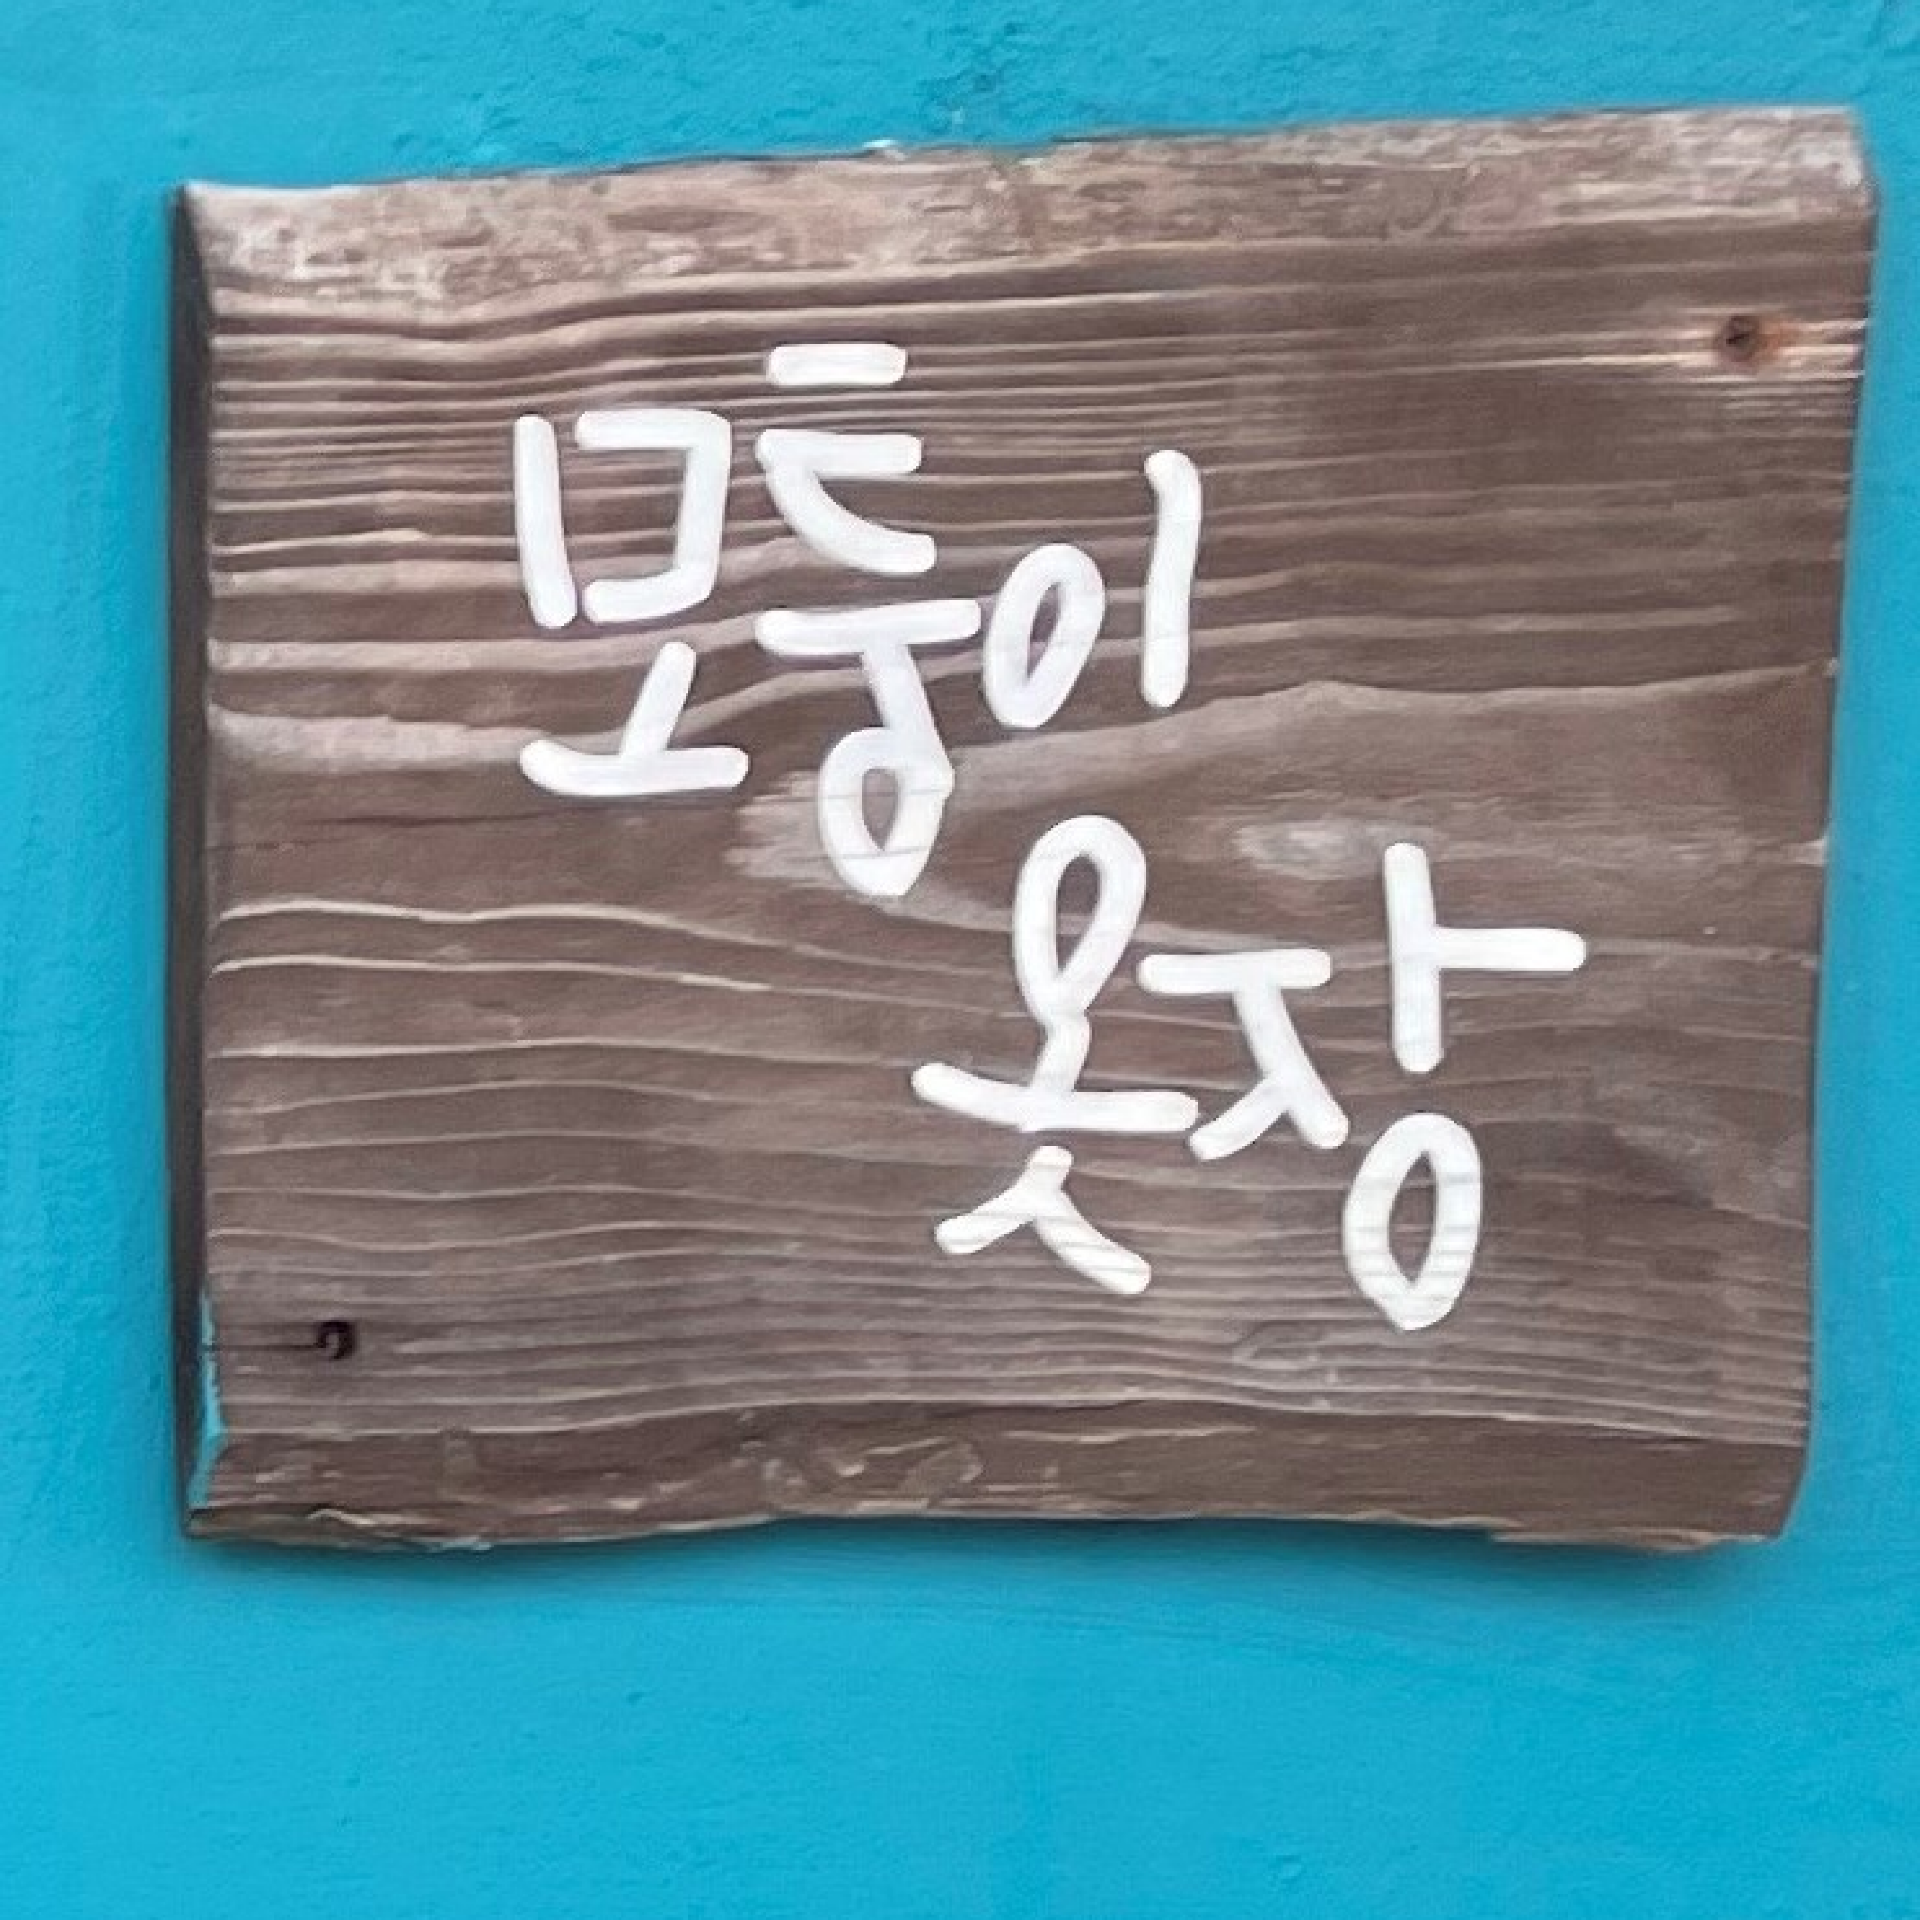 모퉁이
옷장